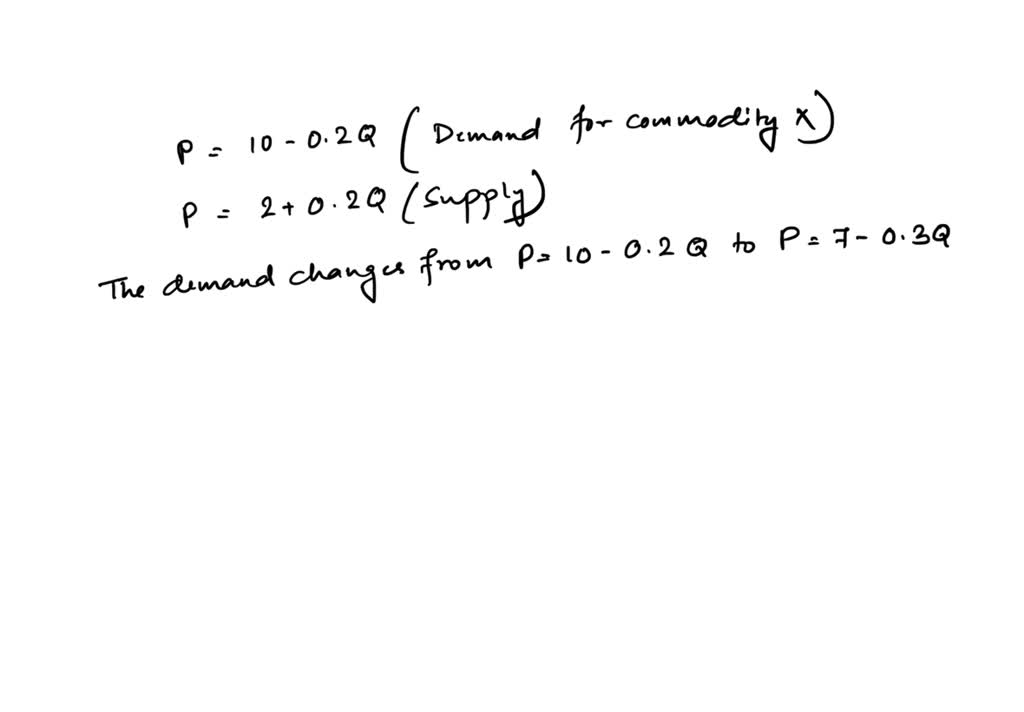 P = 10 - 0.2Q (Demand for commodity X)
P = 2 + 0.2Q (Supply)
The demand changes from P = 10 - 0.2Q to P = 7 - 0.3Q